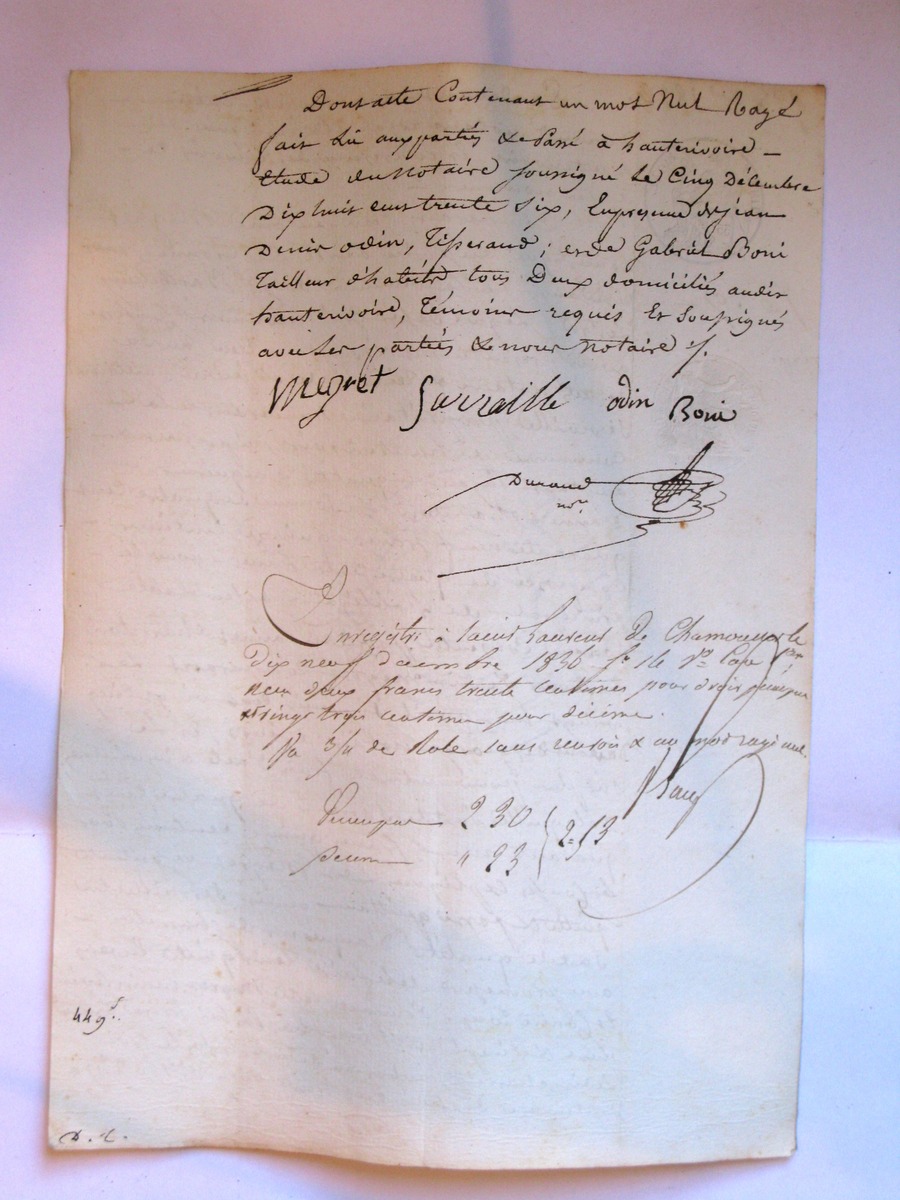 Dont acte Contenant un mot Nul Rayé
fait Lû aux partiés & Passé à hauterivoire –
étude du Notaire Soussigné Le Cinq Décembre
Dix huit cent trente Six, En présence de jean
Denis odin, Tisserand; et de Gabriél Boni
Tailleur d'habits, tous Deux domiciliés audit
hauterivoire, Témoins requis Et Soussignés
avec Les partiés & nous Notaire ./.
odin Boni
Durand
nre.
Enregistré à Saint Laurent de Chamousset le
Dix neuf décembre 1836 fo. 16 Vo. Case
deux francs trente centimes pour droit
& vingt trois centimes pour décime.
Ja 3/4 de Role sans renvoi & un mot rayé nul.
230
décime " 23 2=53
44 9
D. L.